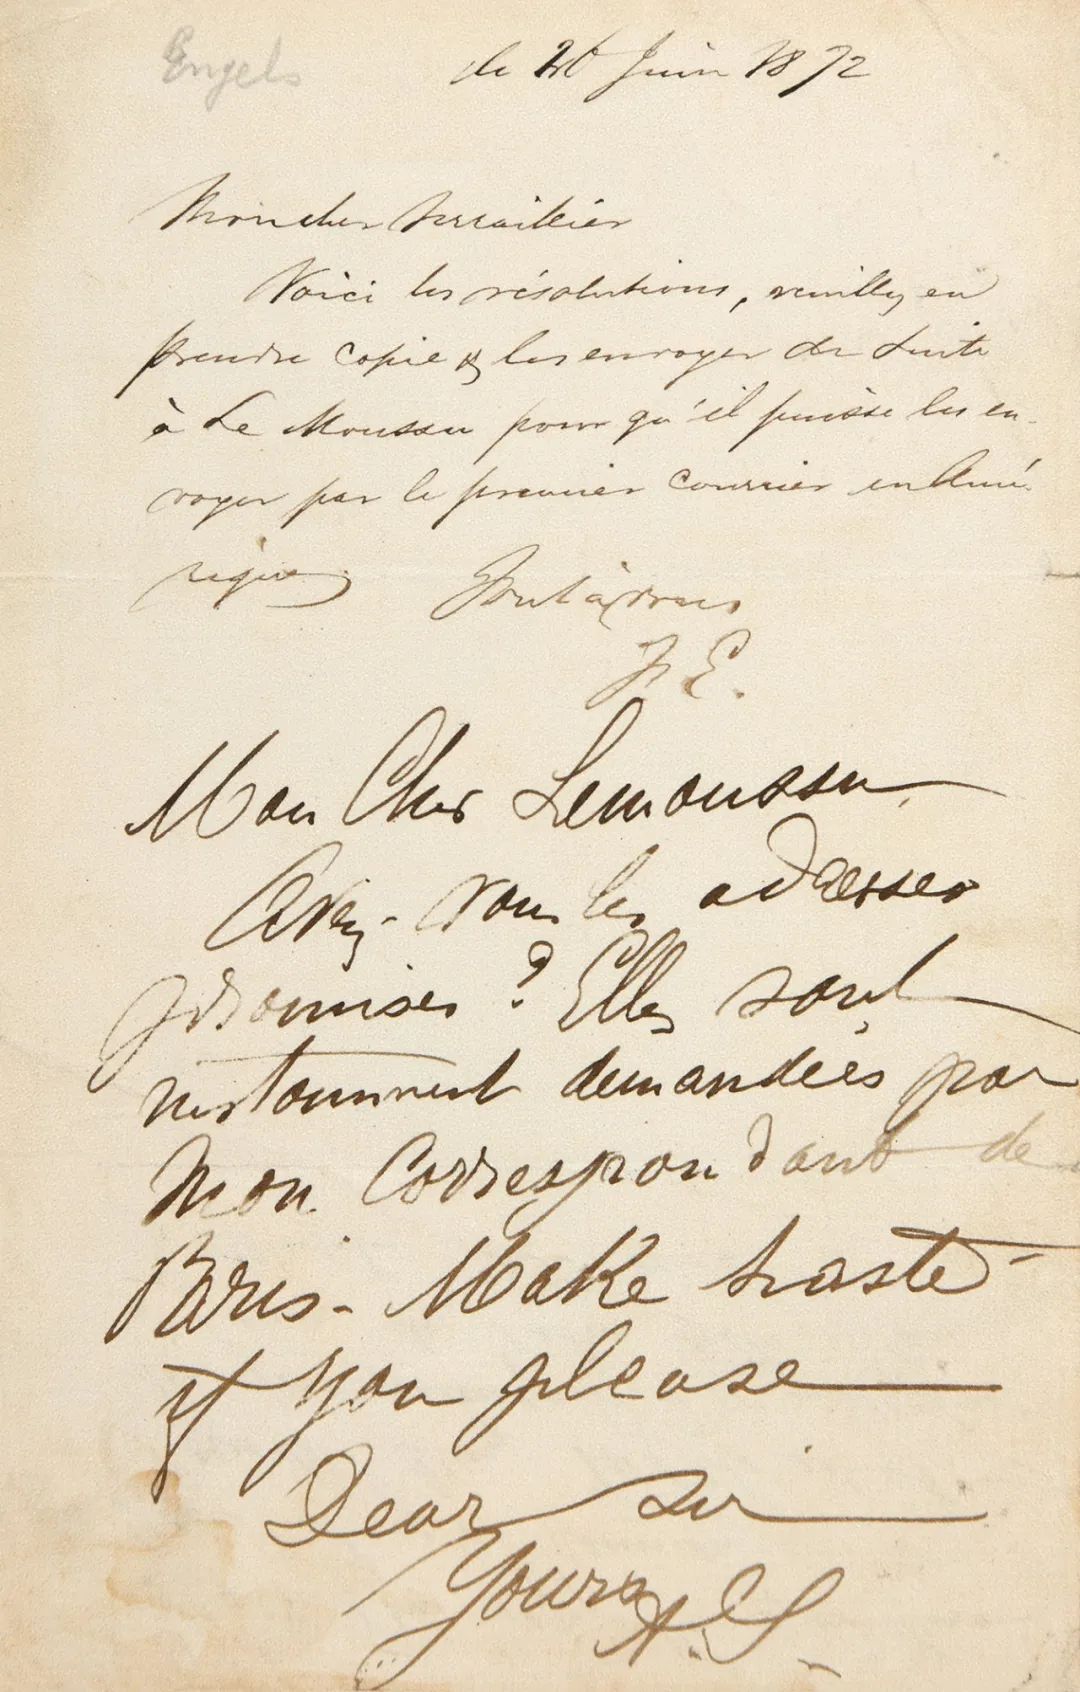 Engels
le 20 Juin 1872
Mon cher Serraillier
Voici les résolutions, veuillez en
prendre copie & les envoyer de suite
à Le Moussu pour qu'il puisse les en-
voyer par le premier courrier en Amé-
rique
Tout à vous
F. E.
Mon Cher Lemoussu
Avez-vous les adresses
promises ? Elles sont
demandées par
Mon Correspondant de
Paris - Make haste
if you please
Dear sir
Yours A. S.